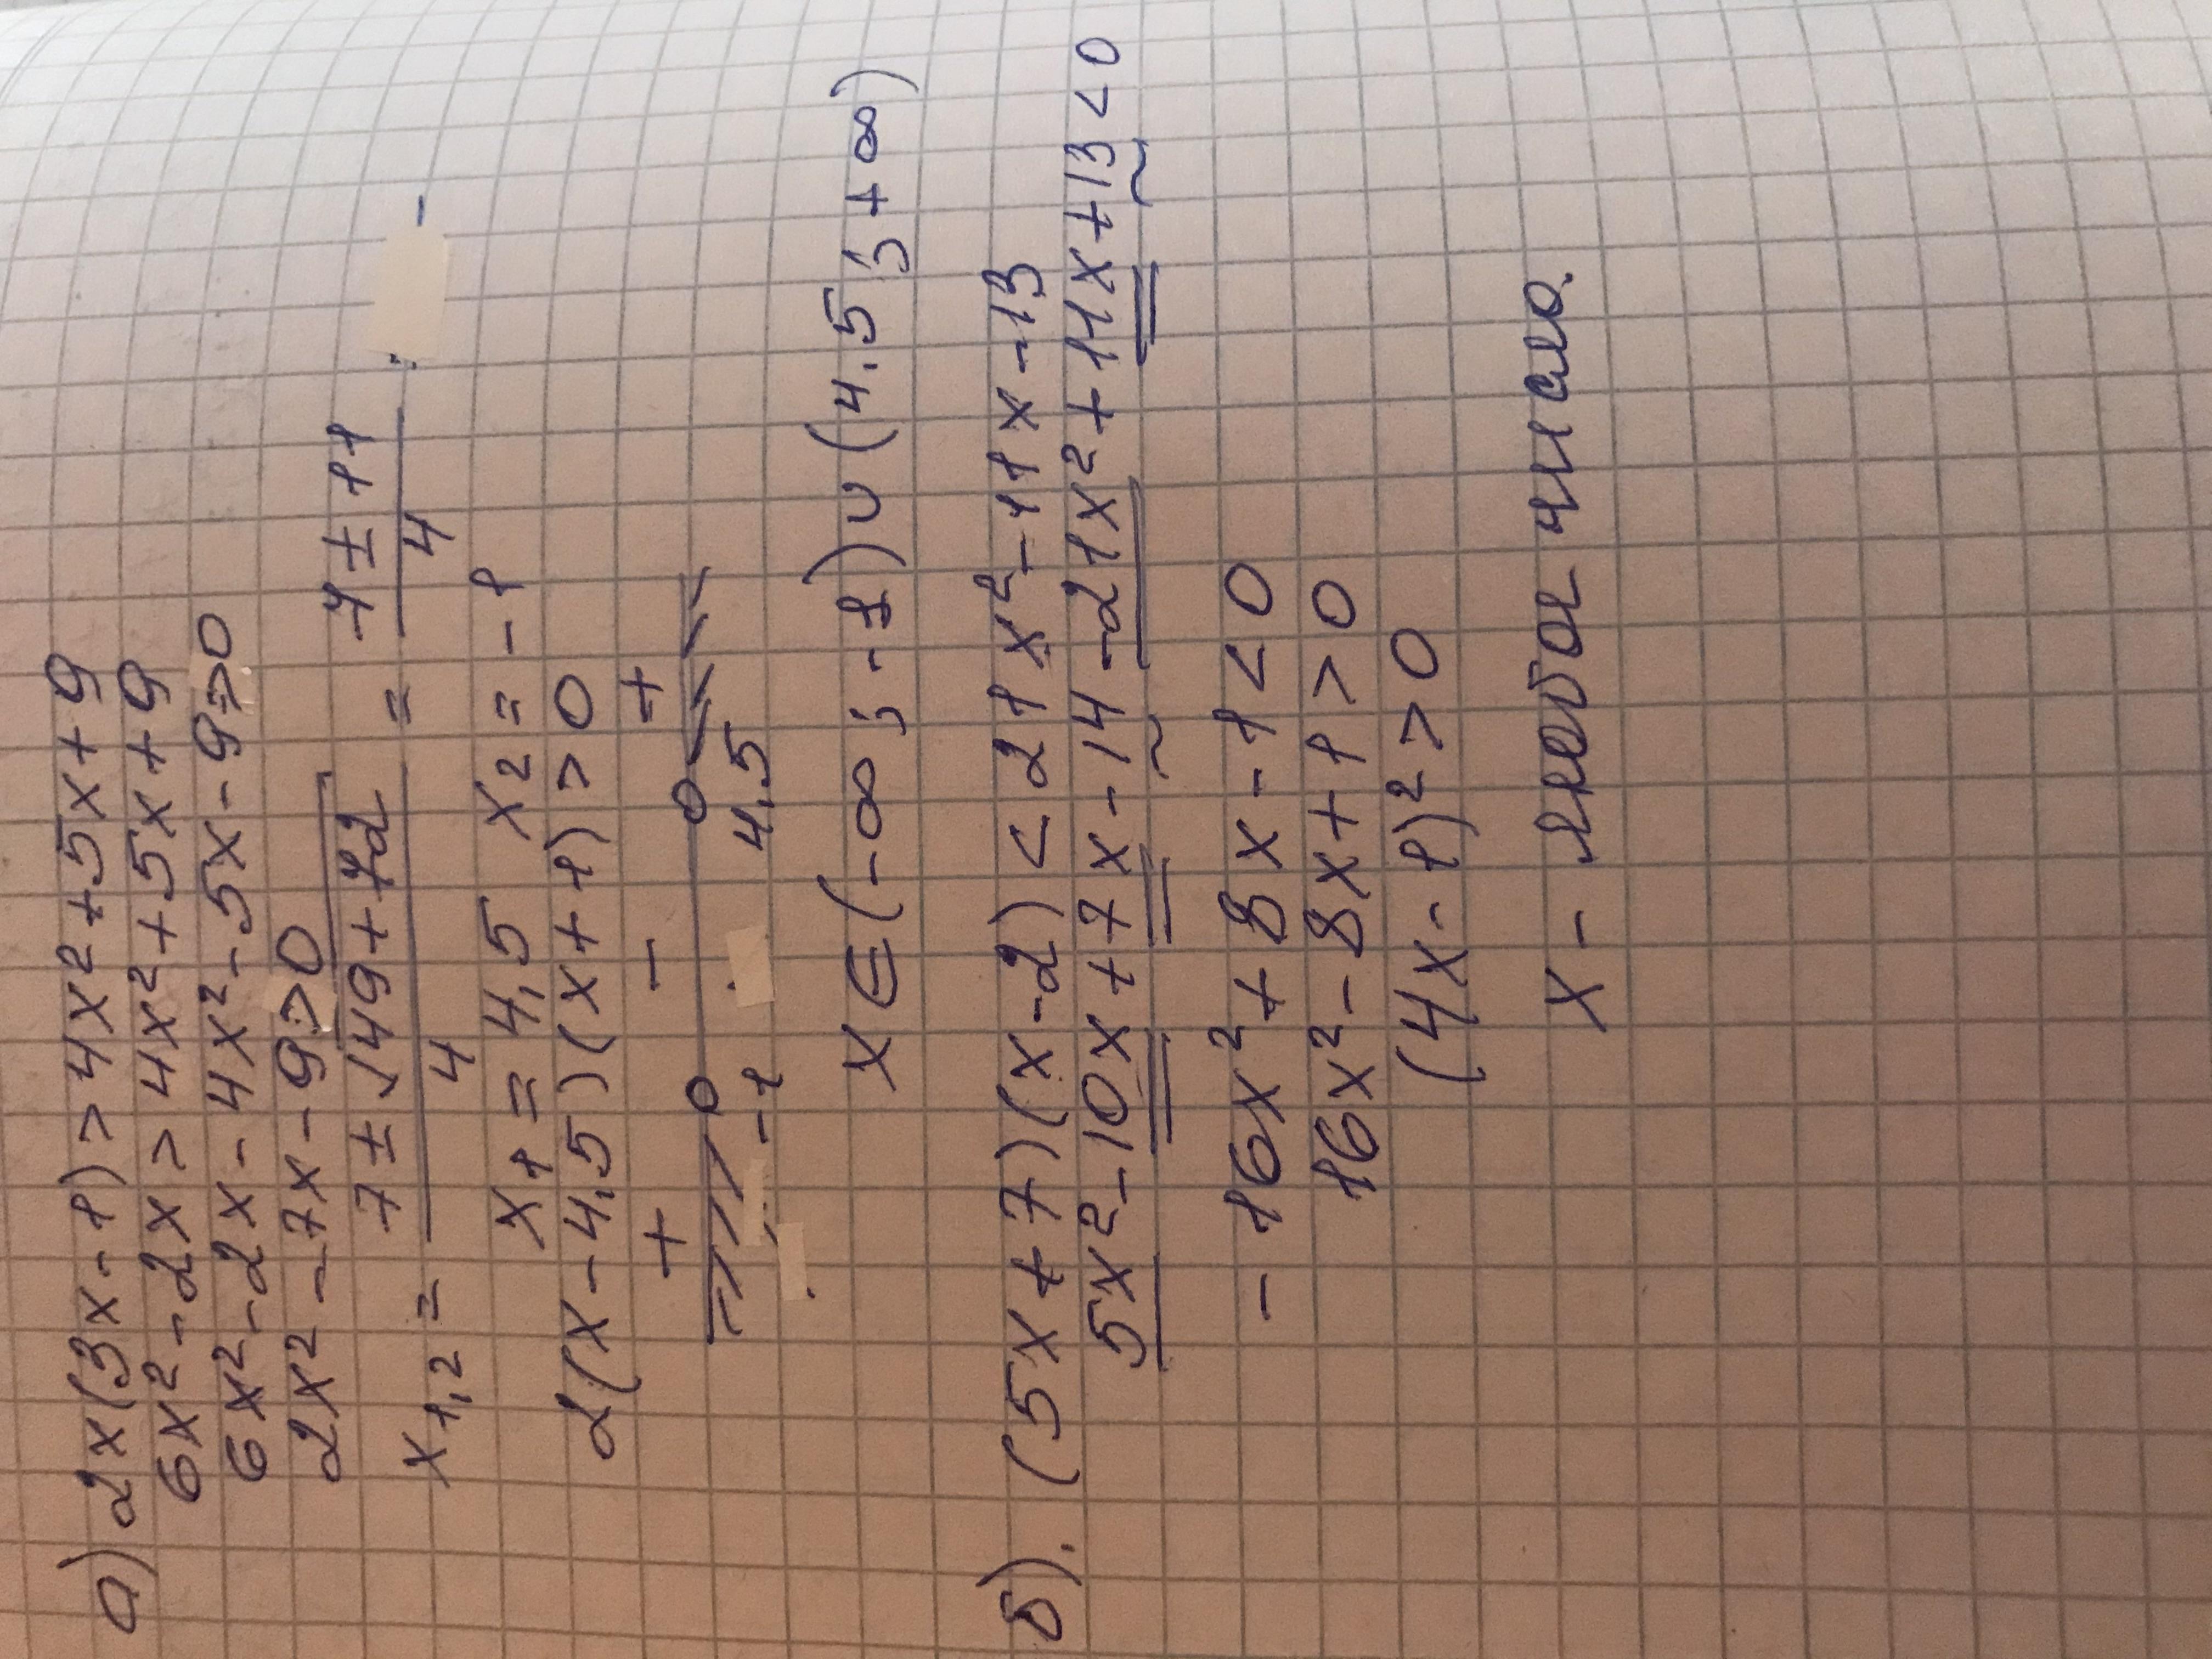 а) 2x(3x-1)>4x²+5x+9
6x²-2x>4x²+5x+9
6x²-2x-4x²-5x-9>0
2x²-7x-9>0
x₁,₂ = (7±√(49+72))/4 = (7±11)/4
x₁=4,5 x₂=-1
2(x-4,5)(x+1)>0
+ - +
-1 4,5
x∈(-∞;-1)∪(4,5;+∞)
б). (5x+7)(x-2)<21x²-11x-13
5x²-10x+7x-14-21x²+11x+13<0
-16x²+8x-1<0
16x²-8x+1>0
(4x-1)²>0
x- любое число.